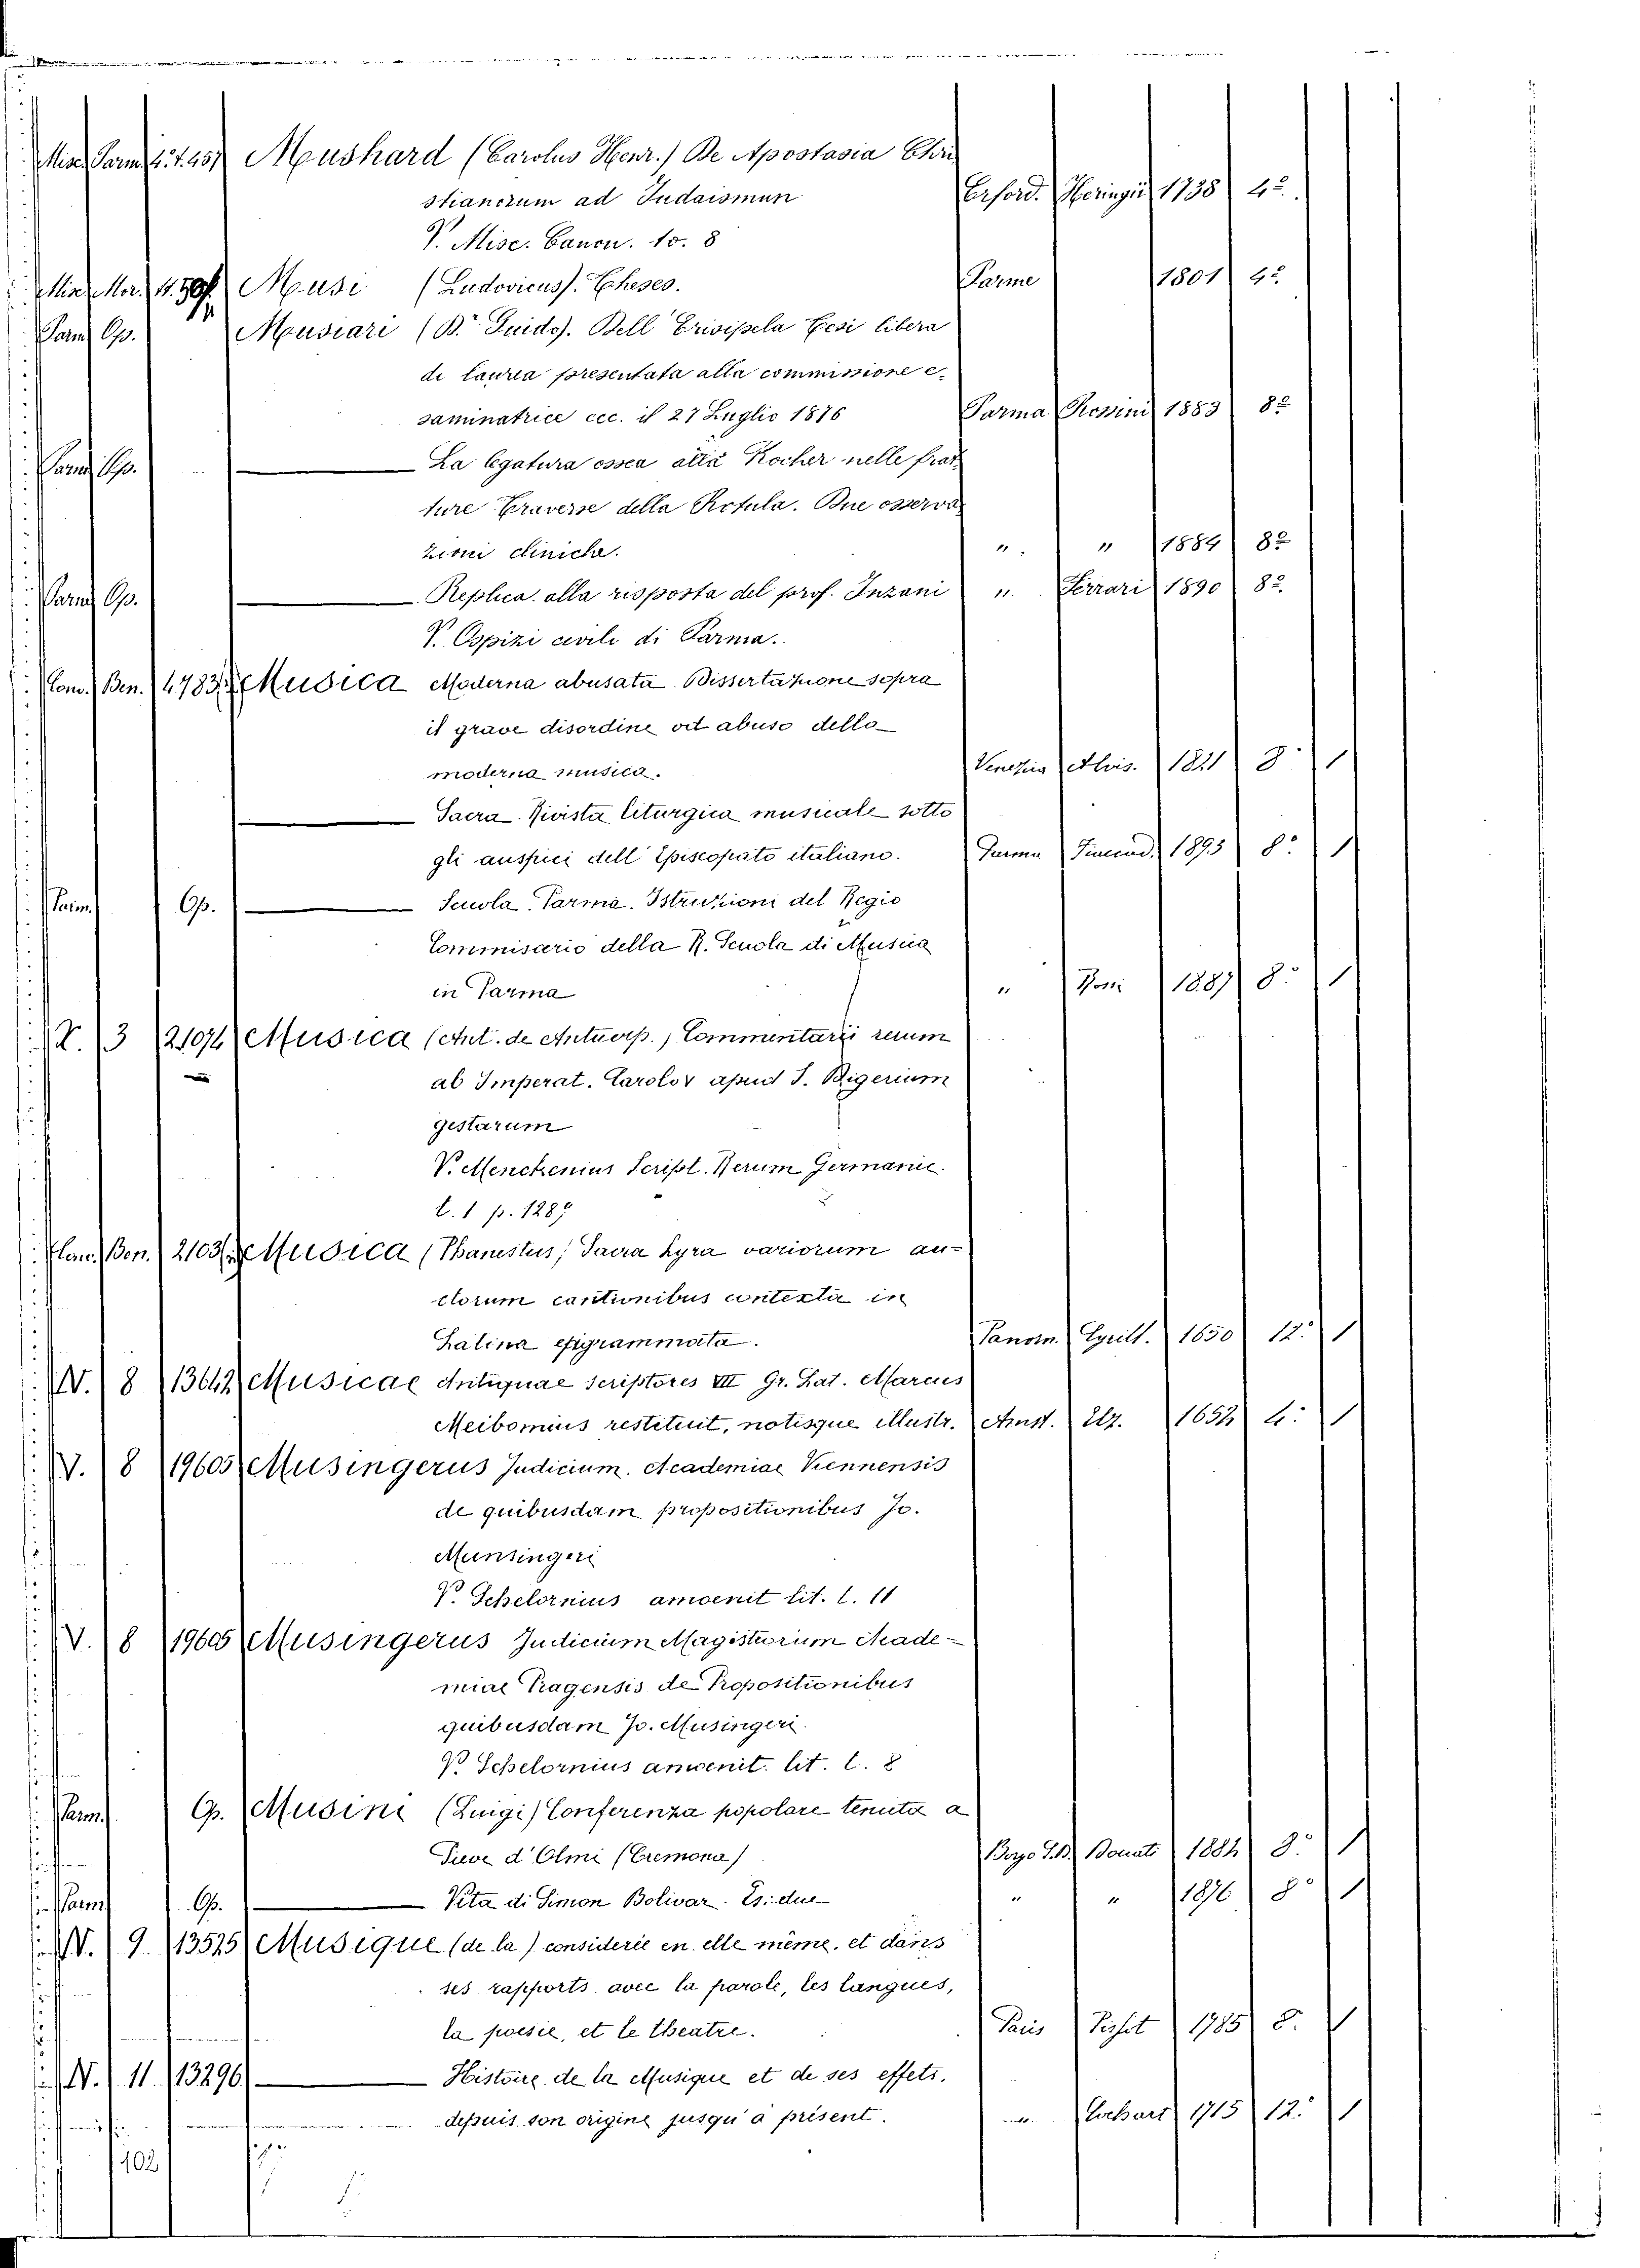 Misc. Parm. 4. t. 451 Mushard (Carolus Henr.) De Apostasia Chri
stianorum ad Judaismun Erford. Heringii 1738 4º.
V. Misc. Canon. to. 8
Misc. Mor. 4. Musi (Ludovicus). Theses. Parme 1801 4º
Parm. Op. Musiari (Dr. Guido). Dell' Erisipela Tesi libera
di laurea presentata alla commissione e
saminatrice ecc. il 27 Luglio 1876 Parma Rossini 1883 8º
Parm. Op. La legatura ossea alla Kocher nelle frat
ture Traverse della Rotula. Due osserva
zioni cliniche. " " 1884 8º
Parm. Op. Replica alla risposta del prof. Inzani " Ferrari 1890 8º.
V. Ospizi civili di Parma.
Com. Ben. 4783 Musica Moderna abusata Dissertazione sopra
il grave disordine od abuso della
moderna musica. Venezia Alvis. 1821 8º 1
Sacra. Rivista liturgica musicale sotto
gli auspici dell' Episcopato italiano. Parma Fiaccad. 1895 8º 1
Parm. Op. Scuola. Parma. Istruzioni del Regio
Commisario della R. Scuola di Musica
in Parma " Rossi 1887 8º 1
V. 3 21074 Musica (Ant. de Antuerp.) Commentarii rerum
ab Imperat. Carolo V apud J. Bigerium
gestarum
V. Menckenius Script. Rerum Germanic.
t. 1 p. 1289
Com. Ben. 2103 Musica (Phanestus) Sacra Lyra variorum au-
ctorum cantionibus contexta in
Latina epigrammata. Panorm. Cyrill. 1650 12º 1
N. 8 13642 Musicae Antiquae scriptores VII Gr. Lat. Marcus
Meibomius restituit, notisque illustr. Amst. Elz. 1652 4º 1
V. 8 19605 Musingerus Judicium. Academiae Viennensis
de quibusdam propositionibus Jo.
Munsingeri
V. Schelornius amoenit lit. t. 11
V. 8 19605 Musingerus Judicium Magistrorum Acade-
miae Pragensis de Propositionibus
quibusdam Jo. Musingeri
V. Schelornius amoenit. lit. t. 8
Parm. Op. Musini (Luigi) Conferenza popolare tenuta a
Pieve d'Olmi (Cremona) Borgo S. D. Donati 1884 8º 1
Parm. Op. Vita di Simon Bolivar. Es: due " " 1876 8º 1
N. 9 13525 Musique (de la) considerée en elle même, et dans
ses rapports avec la parole, les langues,
la poesie, et le theatre. Paris Pissot 1785 8º 1
N. 11 13296 Histoire de la Musique et de ses effets.
depuis son origine jusqu'à présent. " Cochart 1715 12º 1
102